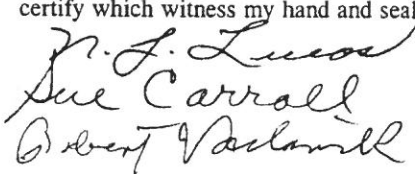 certify which witness my hand and seal
N. L. Lucas
Sue Carroll
Robert